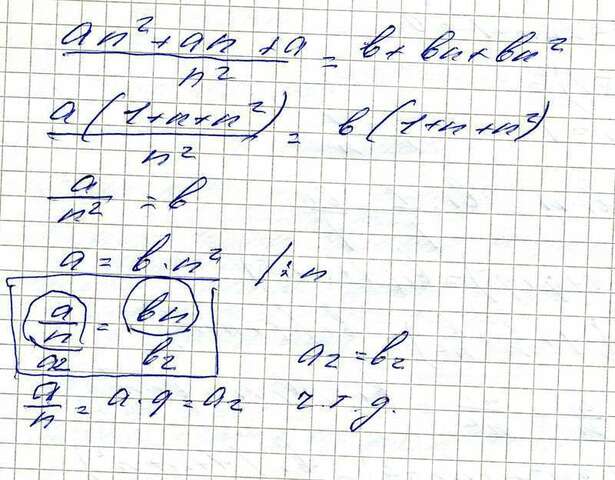 (an² + an + a)/n² = b + bn + bn²
a(1+n+n²)/n² = b(1+n+n²)
a/n² = b
a = b·n² /:n
a/n = bn
a₂ b₂ a₂ = b₂
a/n = a·q = a₂ ч.т.д.